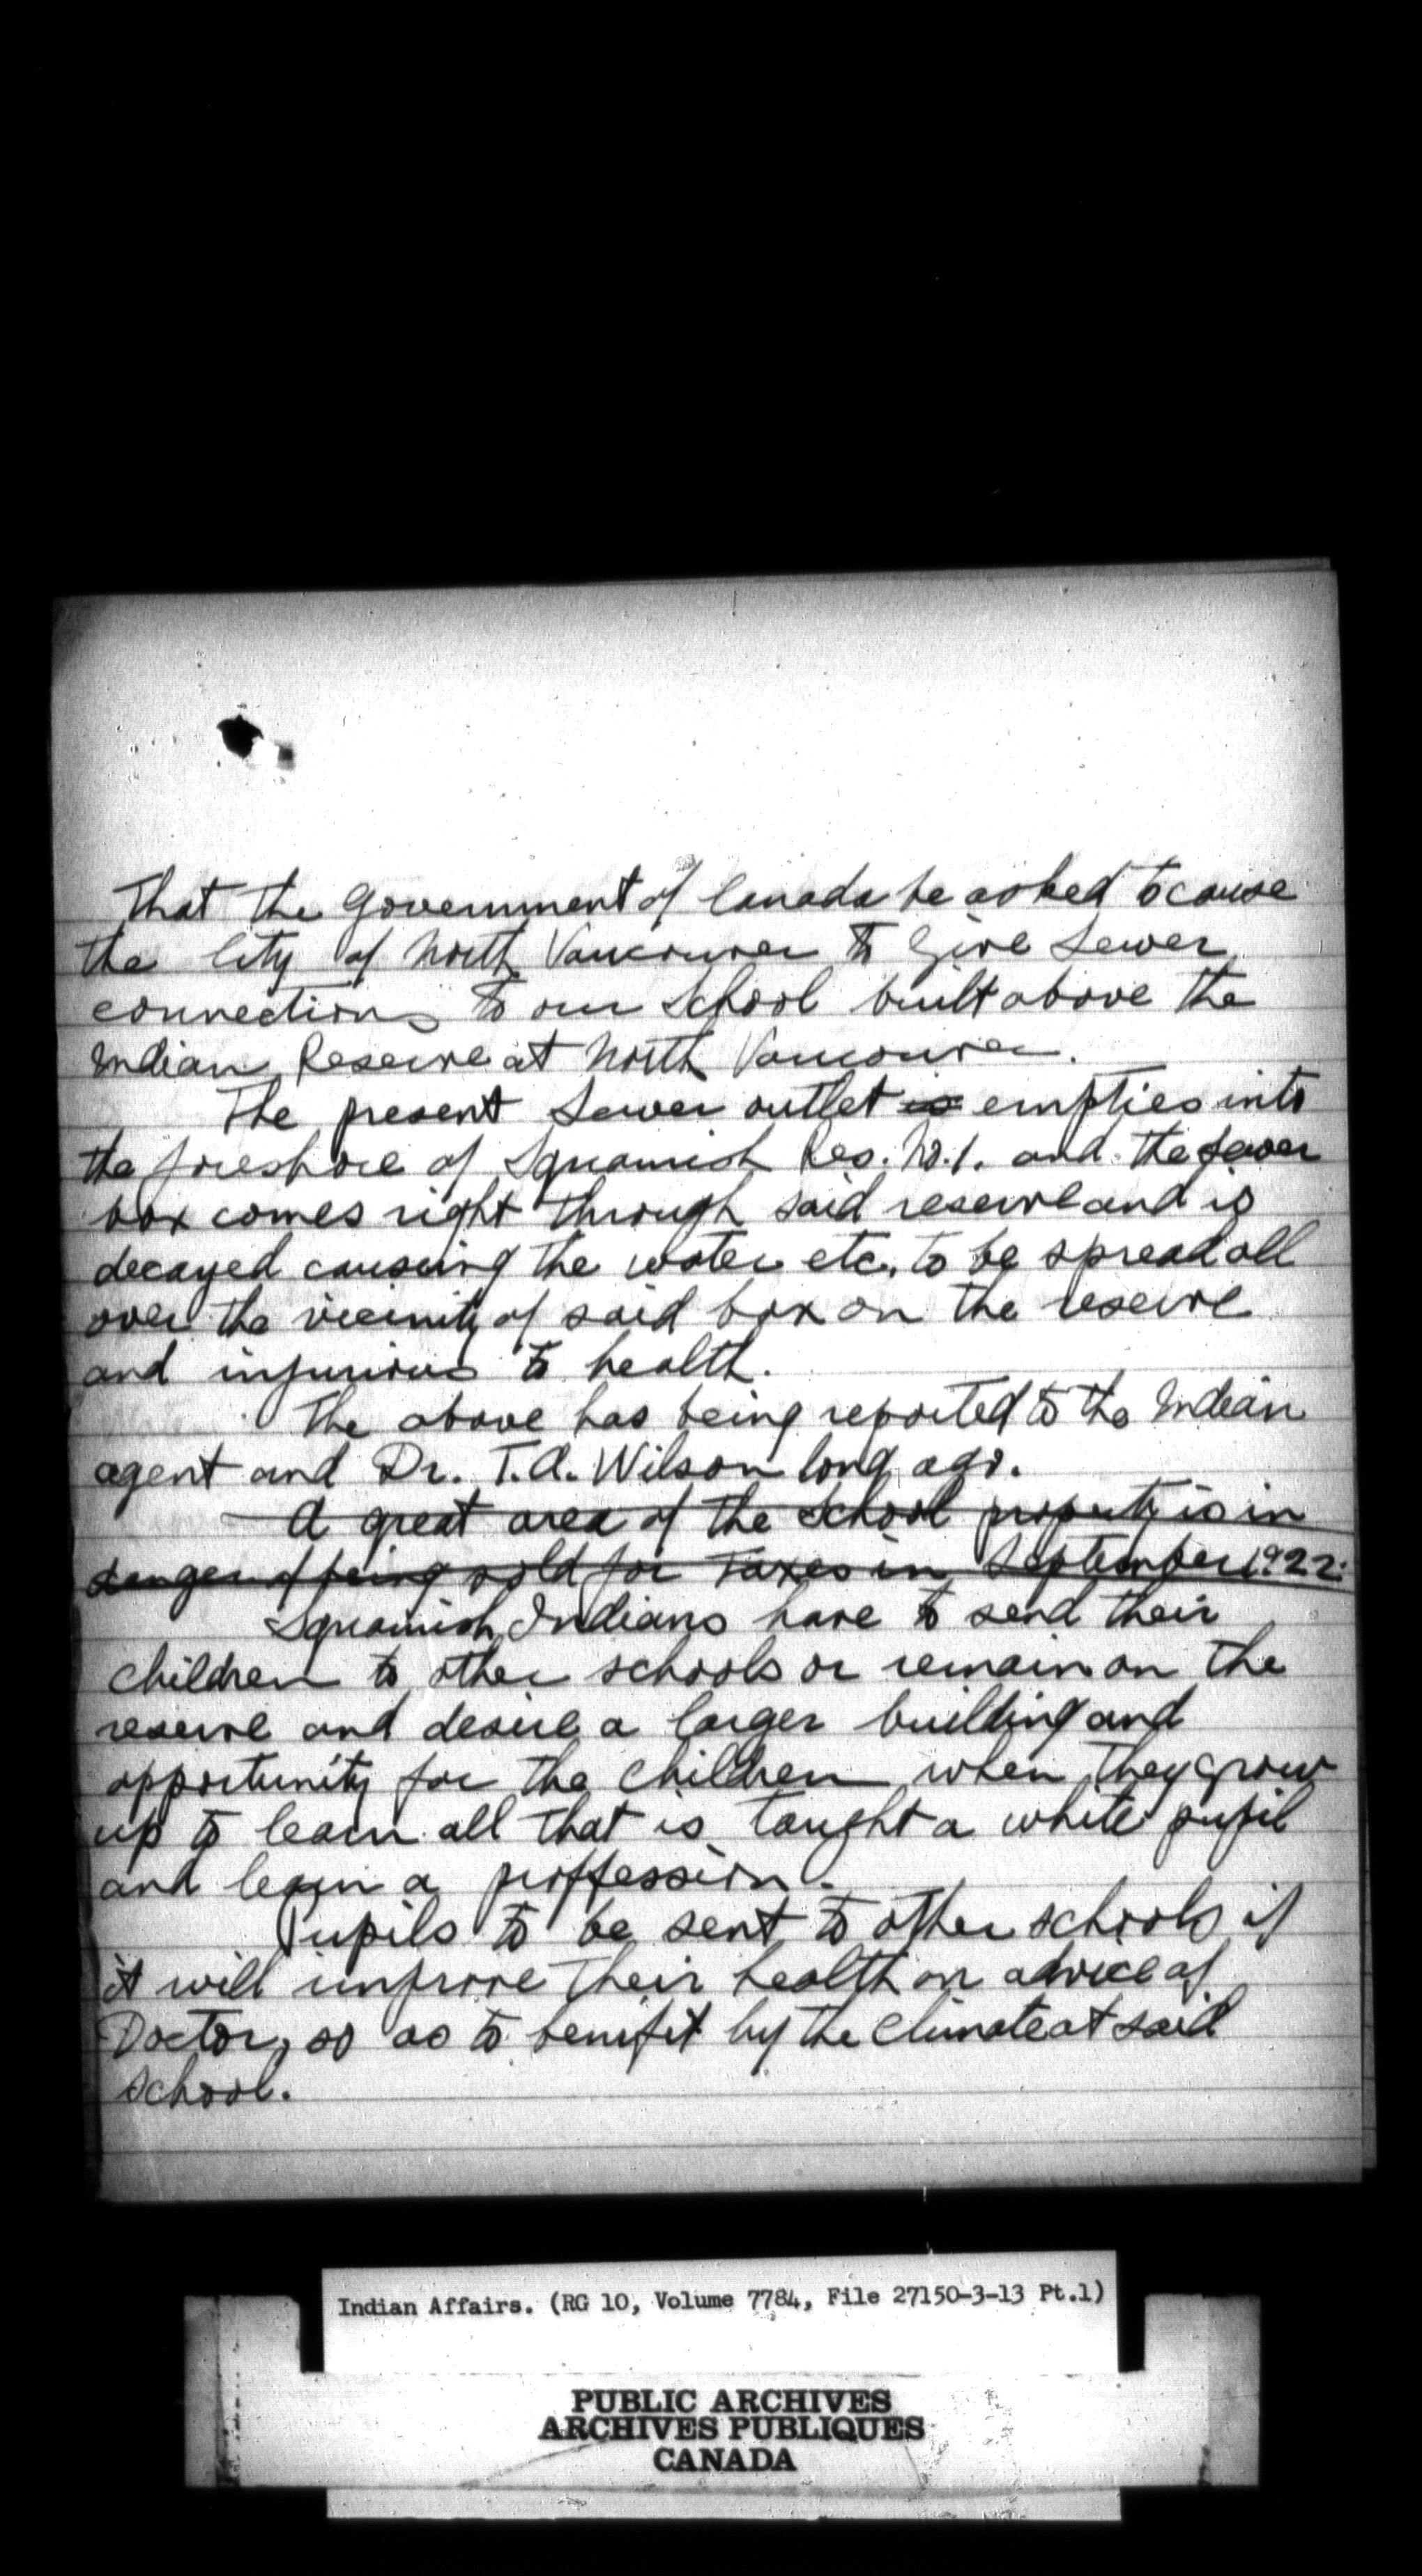 That the Government of Canada be asked to cause
the City of North Vancouver to Give Sewer
connections to our School built above the
Indian Reserve at North Vancouver.
The present Sewer outlet is empties into
the foreshore of Squamish Res. No. 1. and the sewer
box comes right through said reserve and is
decayed causeing the water etc. to be spread all
over the vicinity of said box on the reserve
and injurious to health.
The above has being reported to the Indian
agent and Dr. T.A. Wilson long ago.
A great area of the School property is in
danger of being sold for Taxes in September 1922.
Squamish Indians have to send their
children to other schools or remain on the
reserve and desire a larger building and
opportunity for the children when they grow
up to learn all that is taught a white pupil
and learn a proffession.
Pupils to be sent to other schools if
it will improve their health on advice of
Doctor, so as to benifit by the climate at said
school.
Indian Affairs. (RG 10, Volume 7784, File 27150-3-13 Pt.1)
PUBLIC ARCHIVES
ARCHIVES PUBLIQUES
CANADA